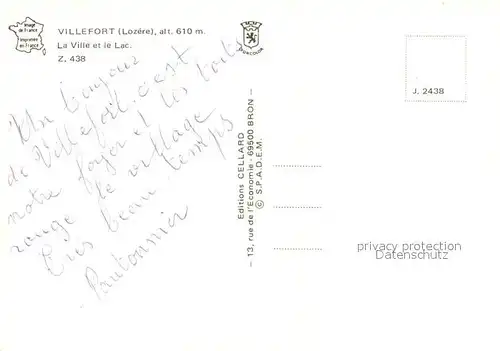 Image de France
Imprimée en France
VILLEFORT (Lozère), alt. 610 m.
La Ville et le Lac.
Z. 438
Un bonjour
de Villefort. c'est
notre foyer et les toits
rouge le village
Très beau temps
Editions CELLARD
— 13, rue de l'Economie - 69500 BRON —
© S.P.A.D.E.M.
J. 2438
privacy protection
AnsichtskartenCenter.de